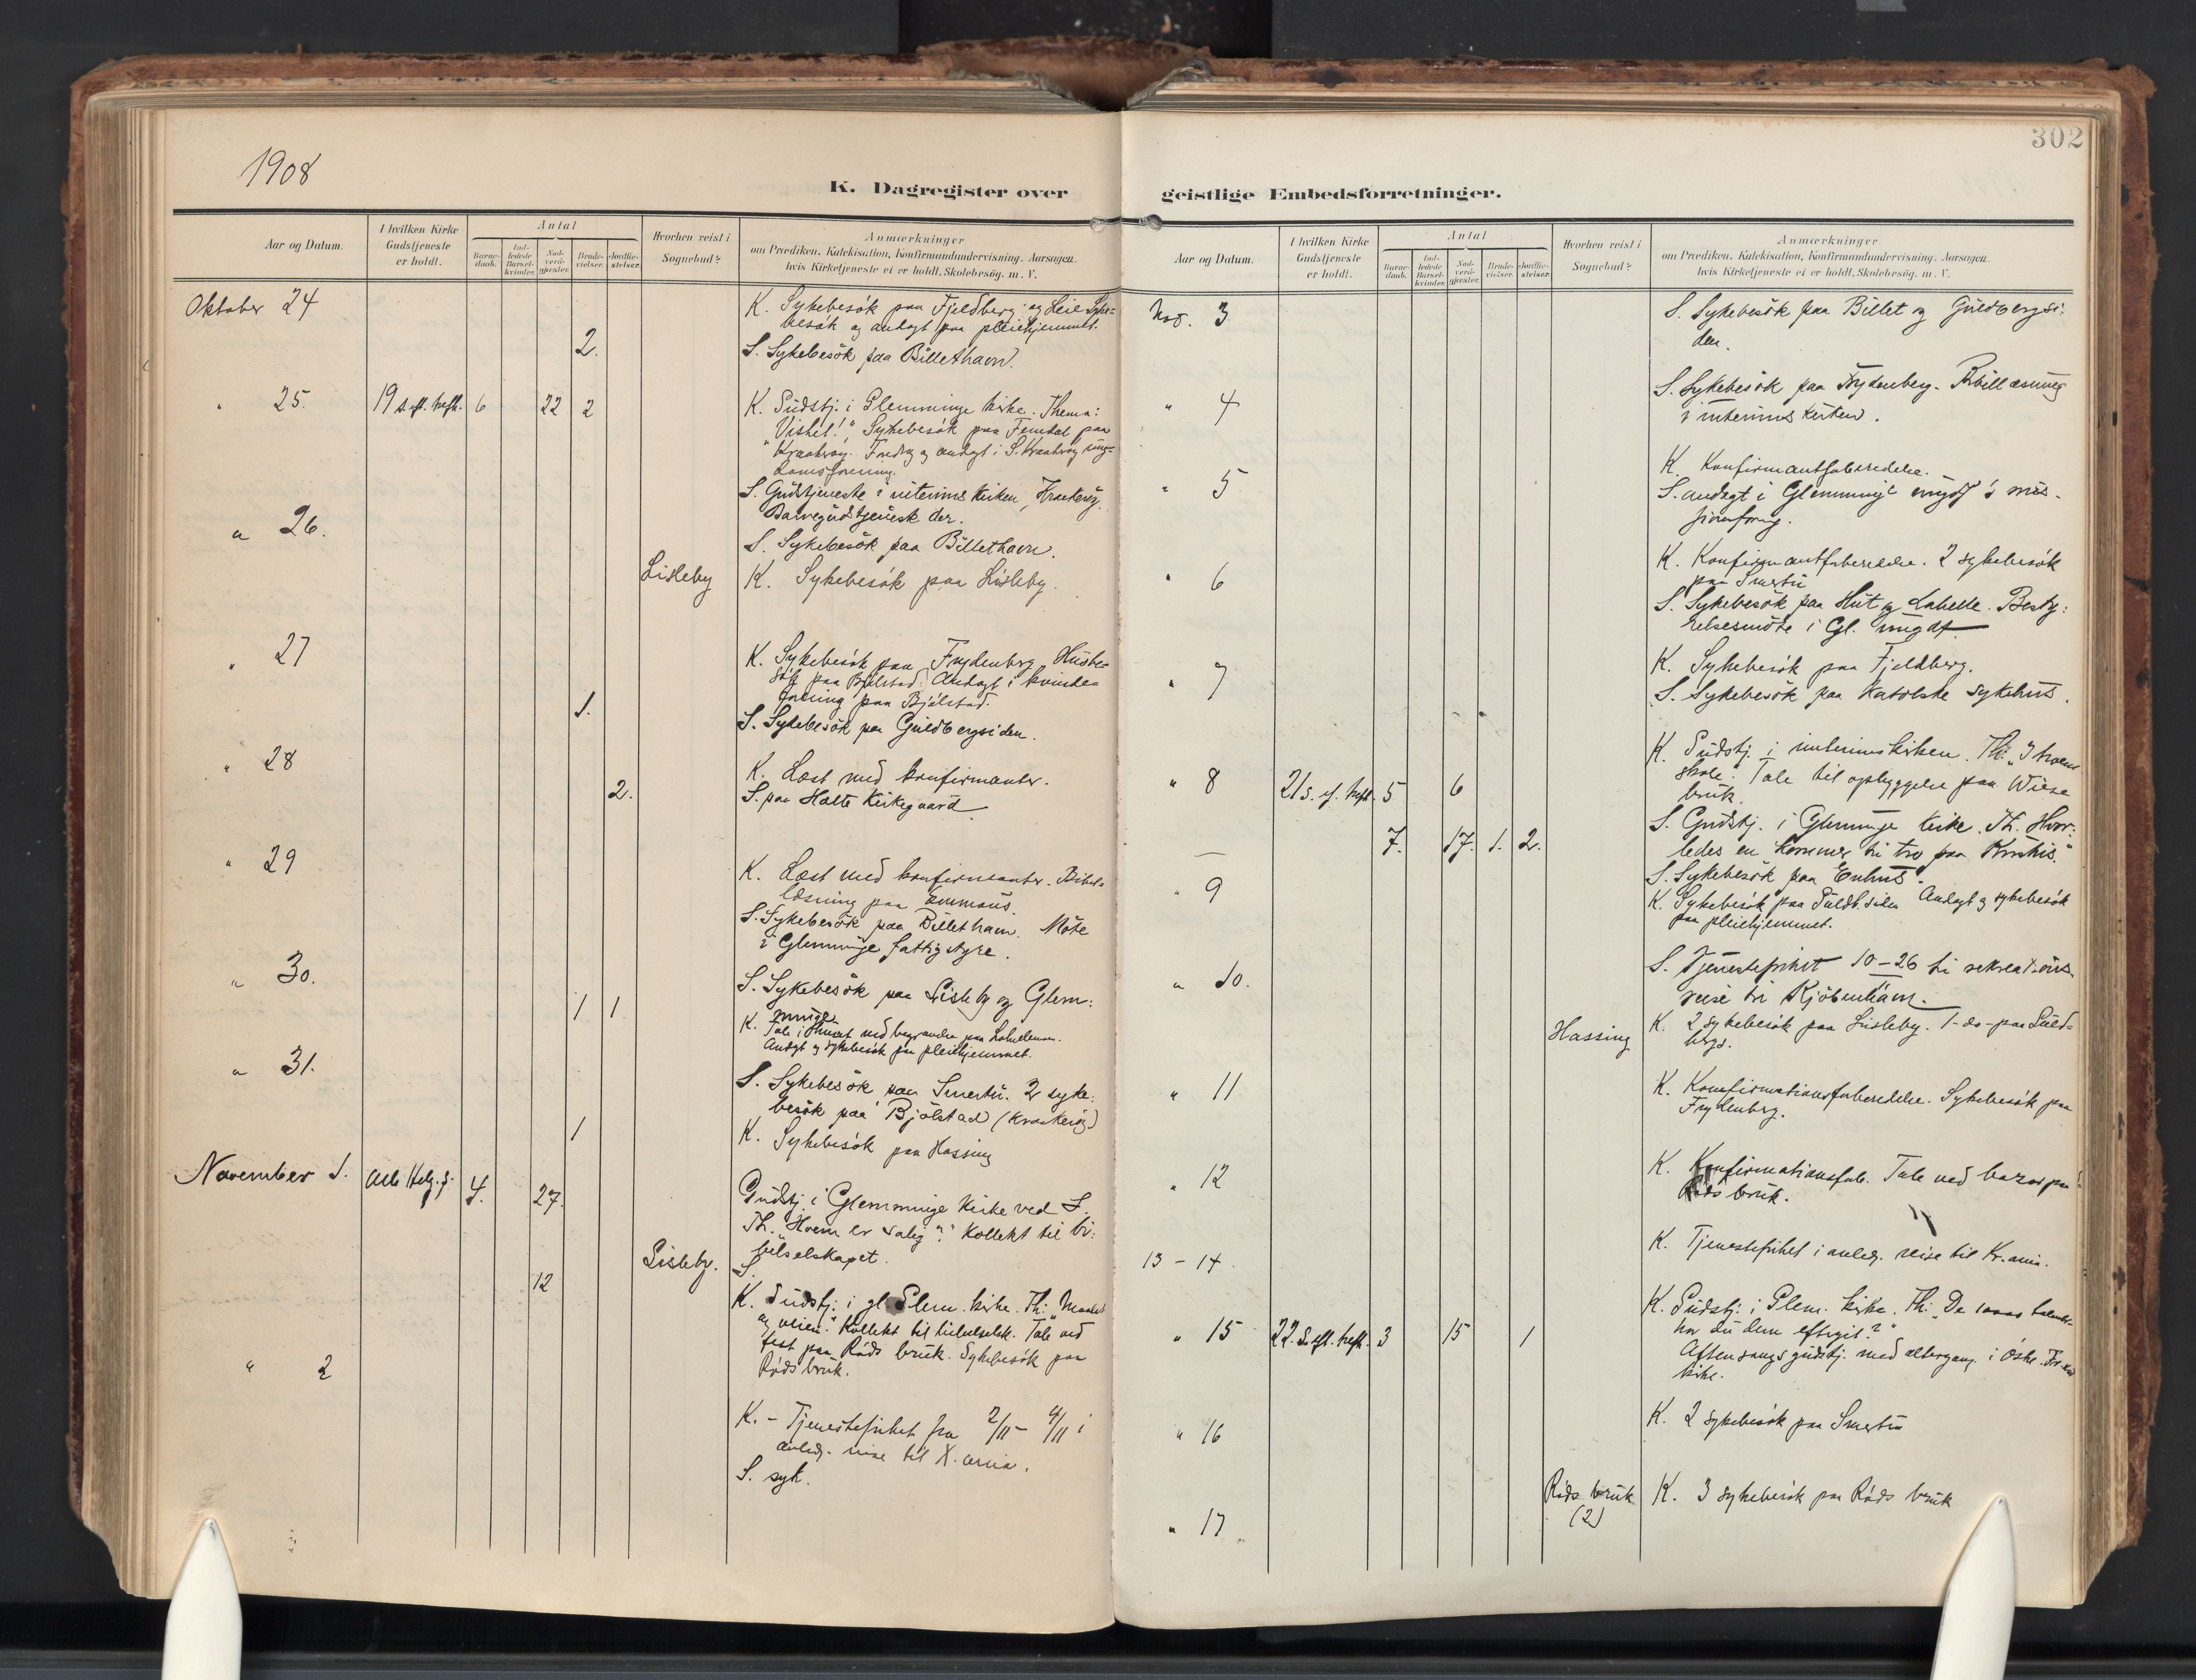 302
1908
K. Dagregister over
Aar og Datum.
I hvilken Kirke
Gudstjeneste
er holdt.
Antal
Barne-
daab.
Ind-
ledede
Barsel-
kvinder.
Nad-
verd-
gjæster.
Brude-
vielser.
Jordfæ-
stelser.
Hvorhen reist i
Sognebud?
Anmærkninger
om Prædiken, Katekisation, Konfirmandundervisning, Aarsagen,
hvis Kirketjeneste ei er holdt, Skolebesög, m. V.
Oktober 24
K. Sykebesök paa Fjeldberg og Leie Syke=
besök og andagt paa pleiehjemmet.
2.
S. Sykebesök paa Billethavn.
" 25. 19 s. eft. trefh. 6 22 2
K. Gudstj. i Glemminge kirke. Thema:
"Vished!" Sykebesök paa paa
Kraakeröy. og andagt i S. Kraakeröy ung-
domsforening.
S. Gudstjeneste i interims kirken, Kraakeröy.
Barnegudstjeneste der.
" 26.
S. Sykebesök paa Billethavn.
Lisleby K. Sykebesök paa Lisleby.
" 27
K. Sykebesök paa Frydenberg. Husbe=
sök paa Bjölstad. Andagt i kvinde=
forening paa Bjölstad.
1.
S. Sykebesök paa Guldbergsiden.
" 28
K. Læst med konfirmanter.
2. S. paa Halte Kirkegaard
" 29
K. Læst med konfirmanter. Bibel=
læsning paa Emmaus.
S. Sykebesök paa Billethavn. Möte
i Glemminge fattigstyre.
" 30.
1 1 S. Sykebesök paa Lisleby og Glem:
minge.
K. Tale i med begravelse paa
Andagt og sykebesök paa pleiehjemmet.
" 31.
S. Sykebesök paa Smertu. 2 syke:
besök paa Bjölstad (Kraakeröy)
1 K. Sykebesök paa Hassing
November 1. Alle Helg. d. 4. 27.
Gudstj. i Glemminge Kirke ved S.
Th. "Hvem er salig?" Kollekt til bi:
belselskapet.
Lisleby. S.
12 K. Gudstj. i gl. Glem. kirke. Th: "Maalet
og veien." Kollekt til bibelselsk. Tale ved
fest paa Röds bruk. Sykebesök paa
Röds bruk.
" 2
K. - Tjenestefrihet fra 2/11 - 4/11 i
anledn. reise til X.ania.
S. syk.
geistlige Embedsforretninger.
Aar og Datum.
I hvilken Kirke
Gudstjeneste
er holdt.
Antal
Barne-
daab.
Ind-
ledede
Barsel-
kvinder.
Nad-
verd-
gjæster.
Brude-
vielser.
Jordfæ-
stelser.
Hvorhen reist i
Sognebud?
Anmærkninger
om Prædiken, Katekisation, Konfirmandundervisning, Aarsagen,
hvis Kirketjeneste ei er holdt, Skolebesög, m. V.
Nov. 3
S. Sykebesök paa Billet og Guldbergsi:
den.
" 4
S. Sykebesök paa Frydenberg. Bibellæsning
i interimskirken.
" 5
K. Konfirmantforberedelse.
S. andagt i Glemminge ungdf's mis-
jonsforeng.
" 6
K. Konfirmantforberedelse. 2 sykebesök
paa Smertu
S. Sykebesök paa Hut og Labelle. Besty:
relsesmöte i Gl. ungdf.
" 7
K. Sykebesök paa Fjeldberg.
S. Sykebesök paa Katolske sykehus.
" 8 21 s. ef. trefh. 5 6
K. Gudstj. i interimskirken. Th: "I troens
skole". Tale til opbyggelse paa Wiese
bruk.
— 7. 17. 1. 2.
S. Gudstj. i Glemminge kirke. Th. Hvor:
ledes en kommer til tro paa Kristus."
" 9
S. Sykebesök paa Enhus.
K. Sykebesök paa Guldb.siden Andagt og sykebesök
paa pleiehjemmet.
" 10.
S. Tjenestefrihet 10-26 til rekreations
reise til Kjöbenhavn.
Hassing K. 2 sykebesök paa Lisleby. 1 -do- paa Guld=
bergs.
" 11
K. Konfirmationsforberedelse. Sykebesök paa
Frydenberg.
" 12
K. Konfirmationsforb. Tale ved basar paa
Röds bruk.
13 - 14.
K. Tjenestefrihet i anledn. reise til Kr.ania.
" 15 22. S. eft. trefh. 3 15 1
K. Gudstj. i Glem. kirke. Th: "De 10000 talenter
har du dem eftergit?"
Aftensangsgudstj. med altergang i Östre Fr.stad
kirke.
" 16
K. 2 sykebesök paa Smertu
" 17
Röds bruk
(2)
K. 3 sykebesök paa Röds bruk